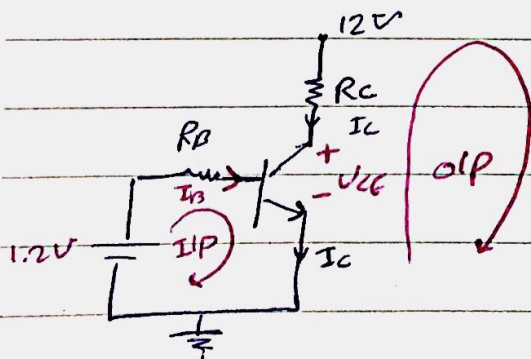 12V
RC
IC
RB
+
O/P
IB
- VCE
1.2V
I/P
IC